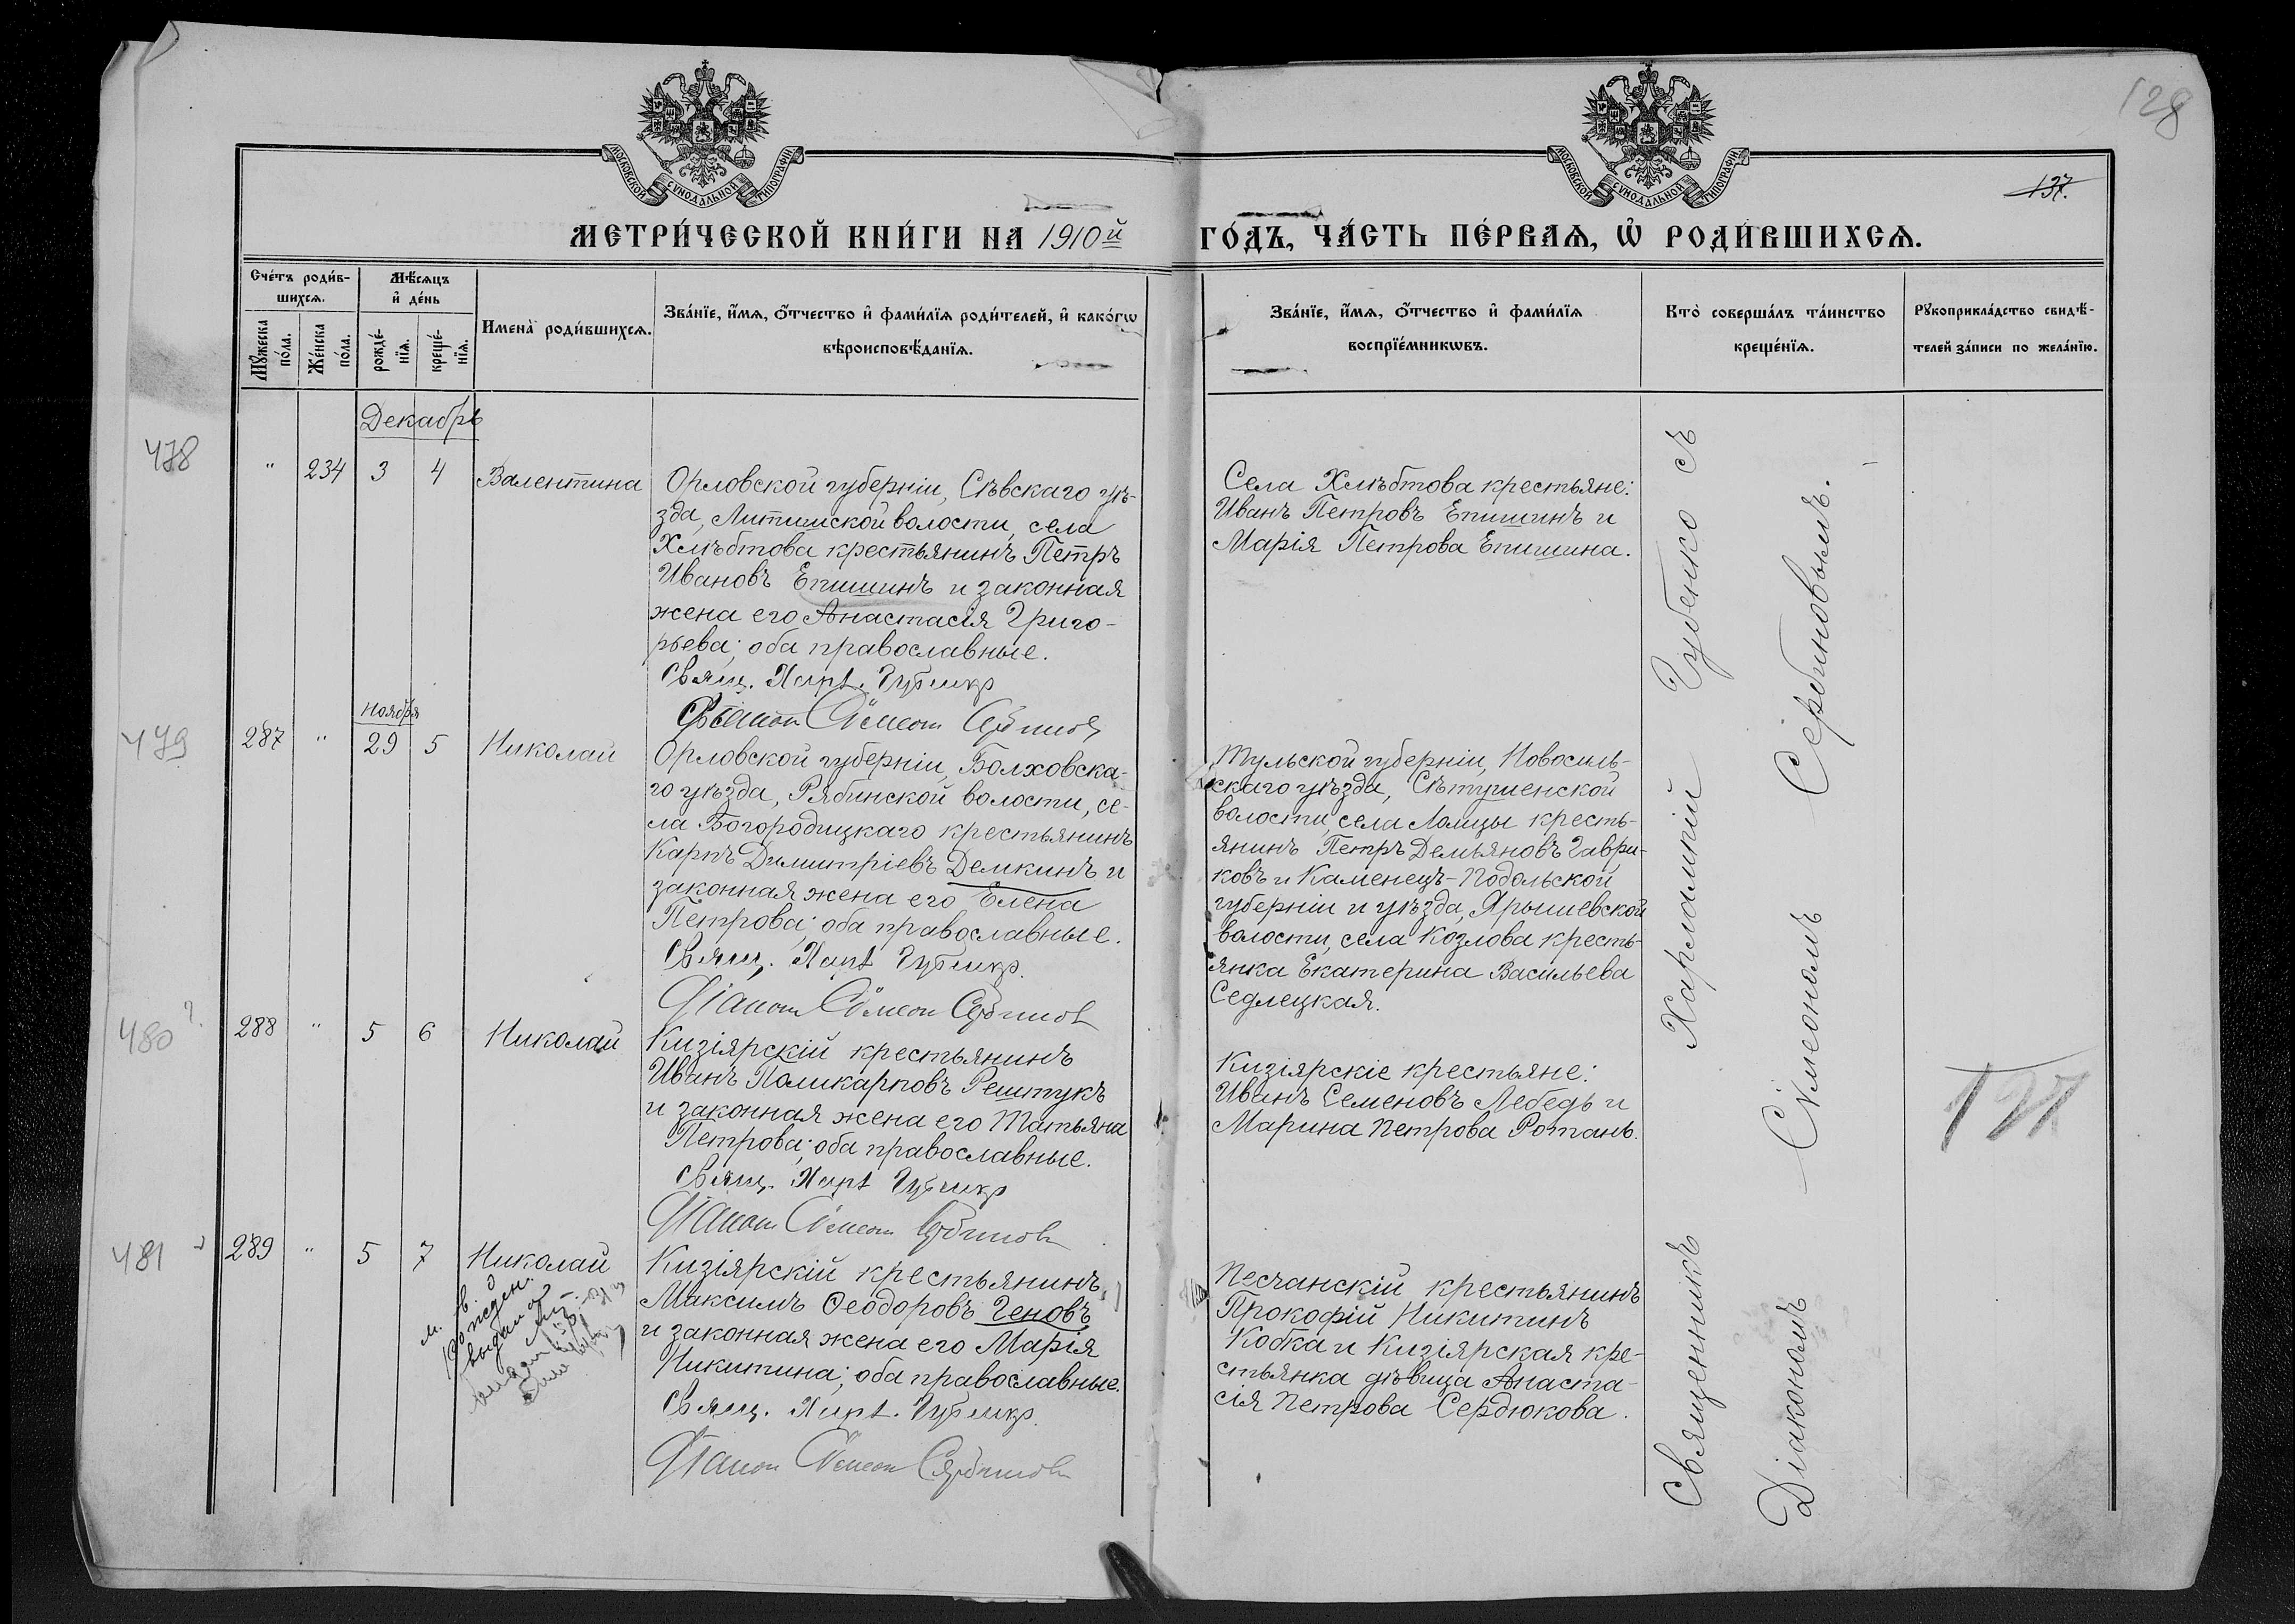 128
137.
МОСКОВСКОЙ СѴНОДАЛЬНОЙ ТИПОГРАФІИ
МОСКОВСКОЙ СѴНОДАЛЬНОЙ ТИПОГРАФІИ
МЕТРИ́ЧЕСКОЙ КНИ́ГИ НА 1910й ГО́ДЪ, ЧА́СТЬ ПЕ́РВАѦ, Ѽ РОДИ́ВШИХСѦ.
Сче́тъ роди́в-
шихсѧ.
Мꙋ́жеска
по́ла.
Же́нска
по́ла.
Мѣ́сѧцъ
и҆ де́нь
рожде́-
нїѧ.
креще́-
нїѧ.
Имена̀ роди́вшихсѧ.
Зва́нїе, и҆́мѧ, ѻ҆́тчество и҆ фами́лїѧ роди́телей, и҆ како́гѡ
вѣроисповѣ́данїѧ.
Зва́нїе, и҆́мѧ, ѻ҆́тчество и҆ фами́лїѧ
воспрїе́мникѡвъ.
Кто̀ соверша́лъ та́инство
креще́нїѧ.
Рꙋкоприкла́дство свидѣ́-
телей за́писи по жела́нїю.
Декабрь
478
" 234 3 4 Валентина
Орловской губерніи, Сѣвскаго уѣ-
зда, Литижской волости, села
Хлѣбтова крестьянинъ Петръ
Ивановъ Епишинъ и законная
жена его Анастасія Григо-
рьева; оба православные.
Свящ. Харл. Губенко
Діаконъ Сѵмеонъ Сербиновъ
Села Хлѣбтова крестьяне:
Иванъ Петровъ Епишинъ и
Марія Петрова Епишина.
479
Ноября
287 " 29 5 Николай
Орловской губерніи, Болховска-
го уѣзда, Рябинской волости, се-
ла Богородицкаго крестьянинъ
Карпъ Димитріевъ Демкинъ и
законная жена его Елена
Петрова; оба православные.
Свящ. Харл. Губенко.
Діаконъ Сѵмеонъ Сербиновъ
Тульской губерніи, Новосиль-
скаго уѣзда, Сѣтушенской
волости, села Ломцы кресть-
янинъ Петръ Демьяновъ Гаври-
ковъ и Каменецъ-Подольской
губерніи и уѣзда, Ярышевской
волости, села Козлова кресть-
янка Екатерина Васильева
Седлецкая.
480
288 " 5 6 Николай
Кизіярскій крестьянинъ
Иванъ Поликарповъ Рештукъ
и законная жена его Татьяна
Петрова; оба православные.
Свящ. Харл. Губенко
Діаконъ Сѵмеонъ Сербиновъ
Кизіярскіе крестьяне:
Иванъ Семеновъ Лебедь и
Марина Петрова Ротань.
481
289 " 5 7 Николай
Кизіярскій крестьянинъ
Максимъ Ѳеодоровъ Геновъ
и законная жена его Марія
Никитина; оба православные.
Свящ. Харл. Губенко.
Діаконъ Сѵмеонъ Сербиновъ
Песчанскій крестьянинъ
Прокофій Никитинъ
Кобка и Кизіярская кре-
стьянка дѣвица Анаста-
сія Петрова Сердюкова.
Священникъ Харлампій Губенко съ
Діакономъ Сѵмеономъ Сербиновымъ.